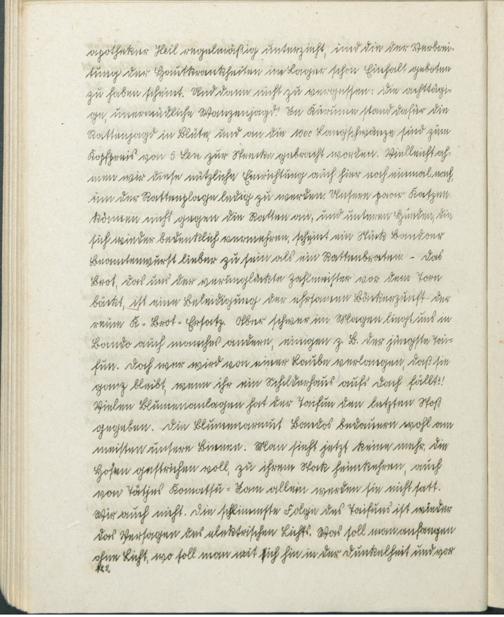 apotheker Heil regelmäßig unterzieht, und die der Verbrei-
tung der Hautkrankheiten im Lager schon Einhalt geboten
zu haben scheint. Und dann nicht zu vergessen: die achttägi-
ge, unermüdliche Wanzenjagd! In Kurume stand dafür die
Rattenjagd in Blüte, und an die 1000 Langschwänze sind zum
Kopfpreis von 5 Sen zur Strecke gebracht worden. Vielleicht ah-
men wir diese nützliche Einrichtung auch hier noch einmal nach,
um der Rattenplage ledig zu werden. Unsere paar Katzen
können nicht gegen die Ratten an, und unseren Hunden, die
sich wieder bedenklich vermehren, scheint ein Stück Bandoer
Beamtenwurst lieber zu sein als ein Rattenbraten. - Das
Brot, das uns der verunglückte Zahlmeister vor dem Torn
bäckt, ist eine Beleidigung der ehrsamen Bäckerzunft. Der
reine K-Brot-Ersatz. Aber schwer im Magen liegt uns in
Bando auch manches andere, einigen z. B. der jüngste Tai-
fun. Doch wer wird von einer Laube verlangen, daß sie
ganz bleibt, wenn ihr ein Schilderhaus aufs Dach fällt!!
Vielen Blumenanlagen hat der Taifun den letzten Stoß
gegeben. Die Blumenarmut Bandos bedauern wohl am
meisten unsere Bienen. Man sieht jetzt keine mehr, die
Hosen gestrichen voll, zu ihrem Stock heimkehren, auch
von Tätjes Komatsu-Bam allein werden sie nicht satt.
Wir auch nicht. Die schlimmste Folge des Taifuns ist wieder
das Versagen des elektrischen Lichts. Was soll man anfangen
ohne Licht, wo soll man mit sich hin in der Dunkelheit und vor